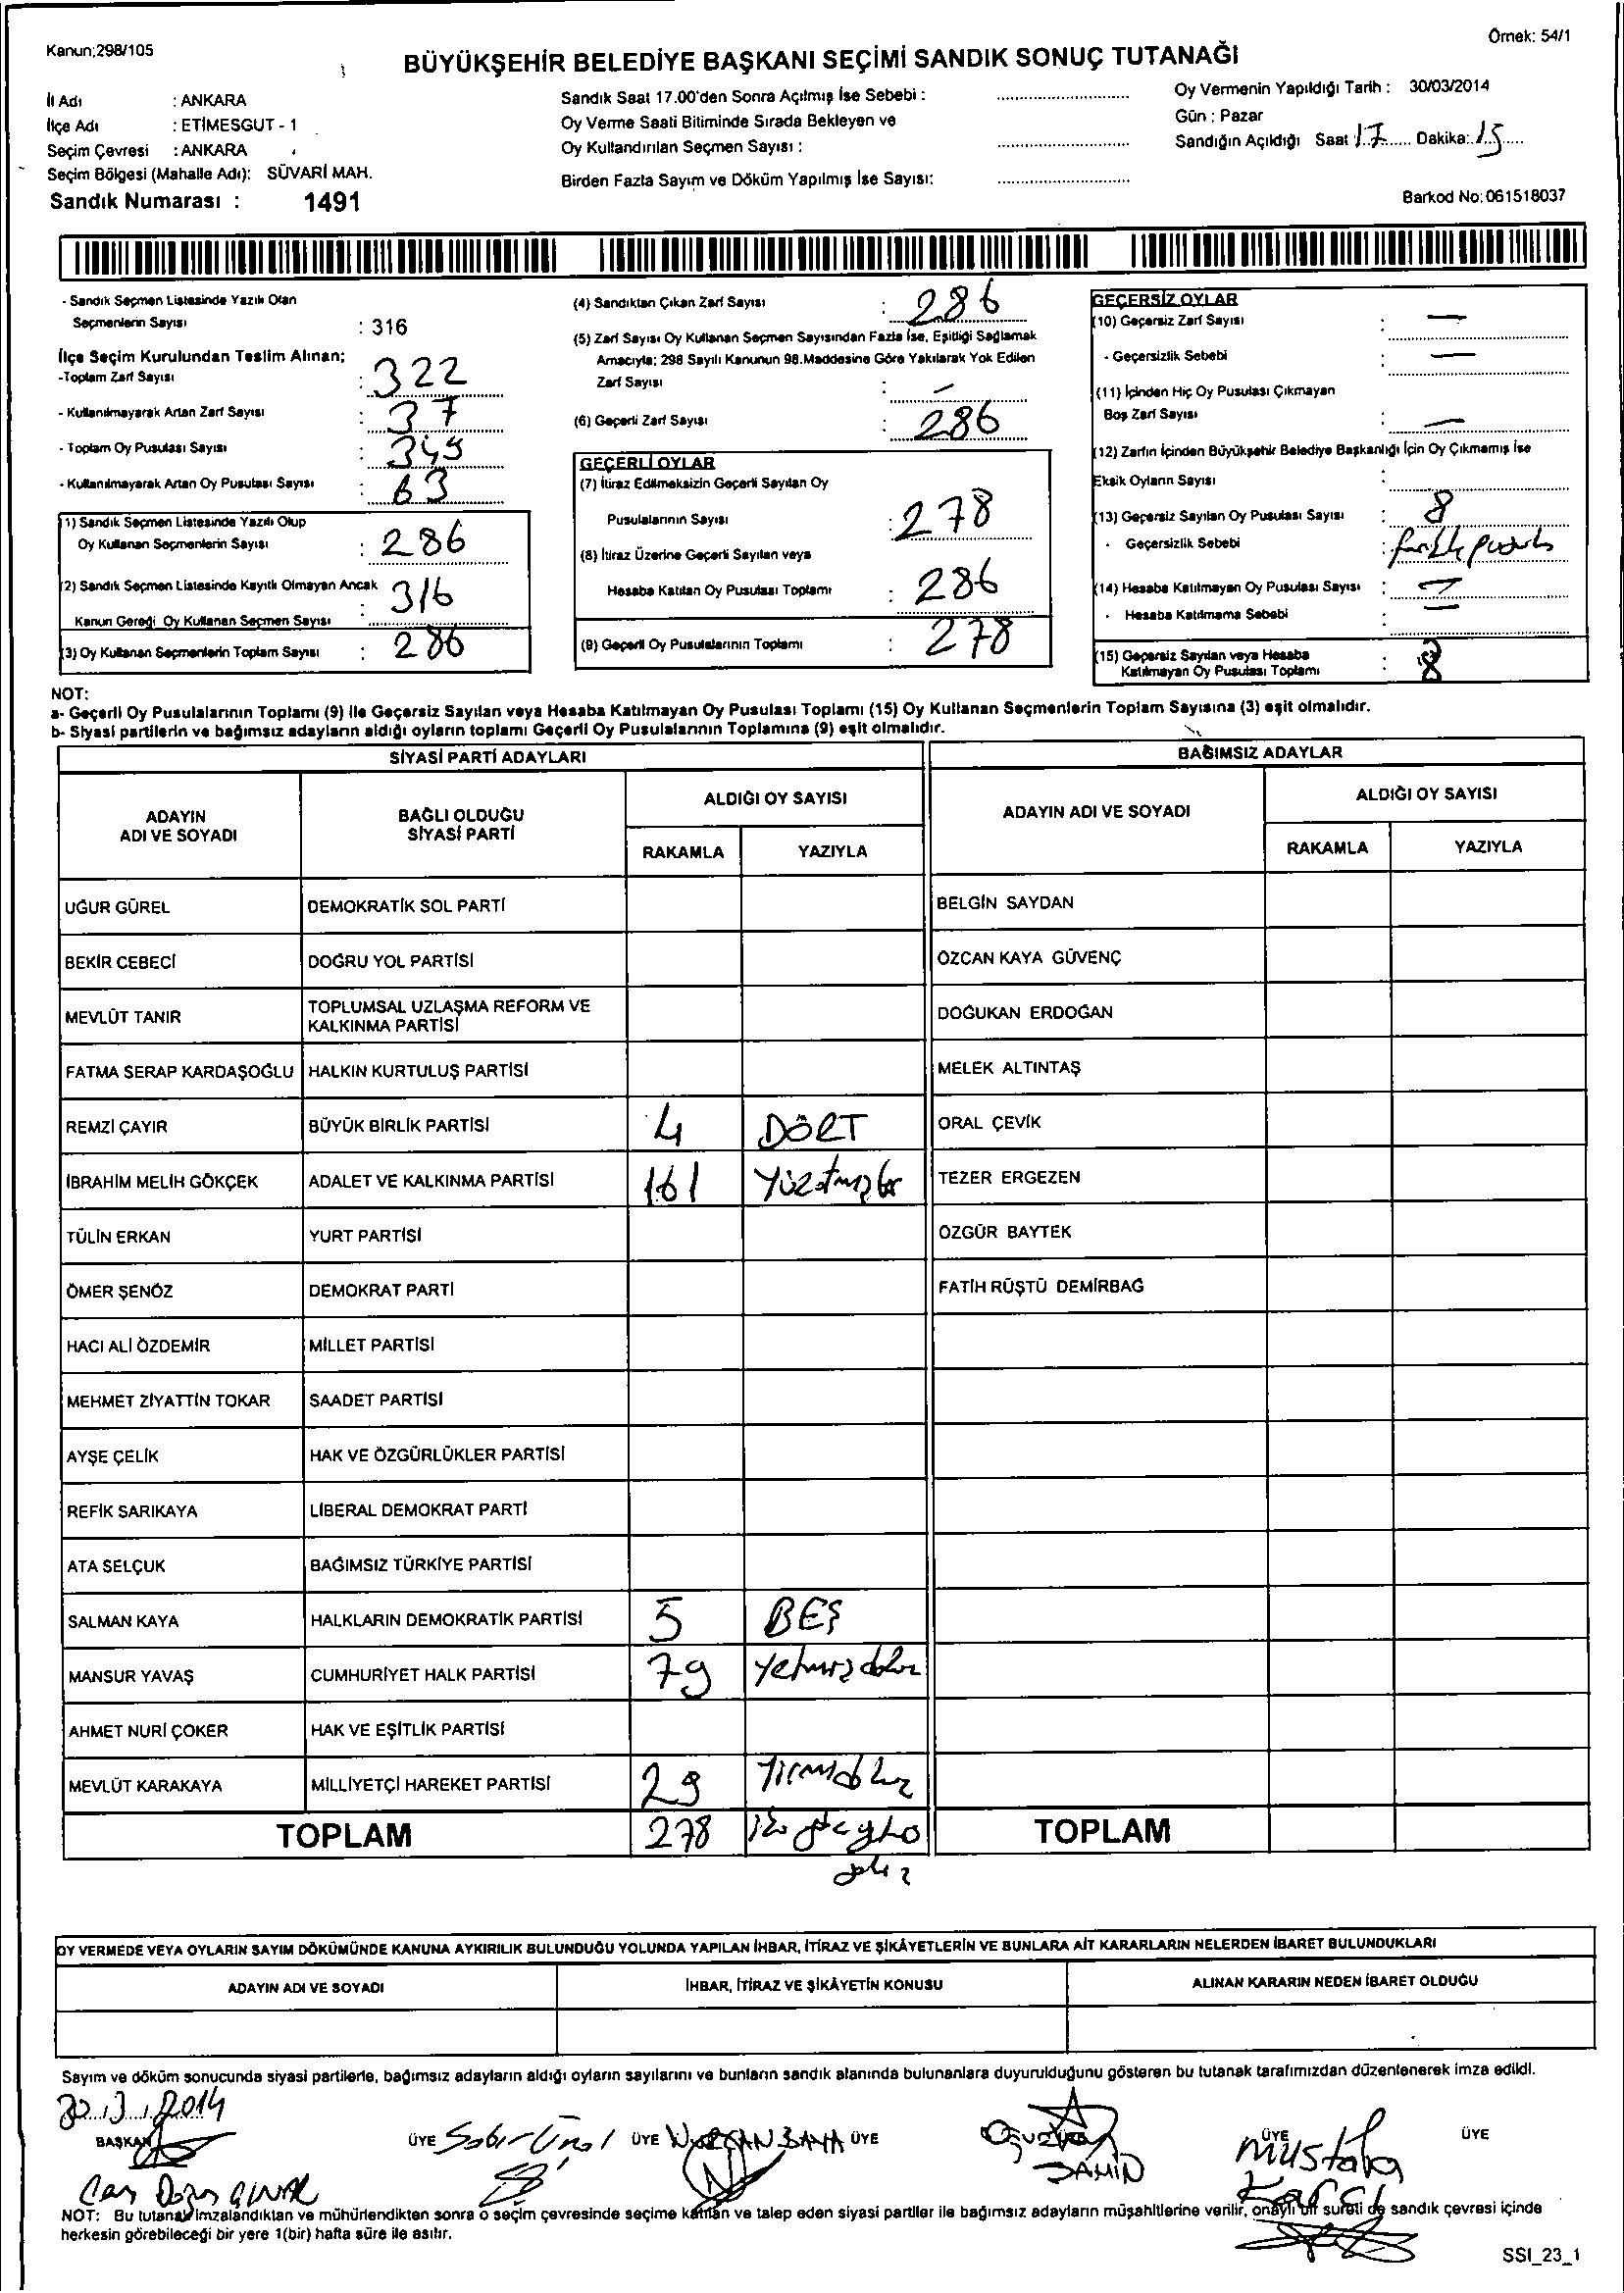 Kanun;298/105
Örnek: 54/1
BÜYÜKŞEHİR BELEDİYE BAŞKANI SEÇİMİ SANDIK SONUÇ TUTANAĞI
İl Adı : ANKARA
İlçe Adı : ETİMESGUT - 1
Seçim Çevresi : ANKARA
Seçim Bölgesi (Mahalle Adı): SÜVARİ MAH.
Sandık Numarası : 1491
Sandık Saat 17.00'den Sonra Açılmış İse Sebebi :
Oy Verme Saati Bitiminde Sırada Bekleyen ve
Oy Kullandırılan Seçmen Sayısı :
Birden Fazla Sayım ve Döküm Yapılmış İse Sayısı:
Oy Vermenin Yapıldığı Tarih : 30/03/2014
Gün : Pazar
Sandığın Açıldığı Saat : 17 Dakika: 15
Barkod No: 061518037
- Sandık Seçmen Listesinde Yazılı Olan
Seçmenlerin Sayısı : 316
İlçe Seçim Kurulundan Teslim Alınan;
-Toplam Zarf Sayısı : 322
- Kullanılmayarak Artan Zarf Sayısı : 37
- Toplam Oy Pusulası Sayısı : 349
- Kullanılmayarak Artan Oy Pusulası Sayısı : 63
1) Sandık Seçmen Listesinde Yazılı Olup
Oy Kullanan Seçmenlerin Sayısı : 286
(2) Sandık Seçmen Listesinde Kayıtlı Olmayan Ancak
Kanun Gereği Oy Kullanan Seçmen Sayısı : 316
(3) Oy Kullanan Seçmenlerin Toplam Sayısı : 286
(4) Sandıktan Çıkan Zarf Sayısı : 286
(5) Zarf Sayısı Oy Kullanan Seçmen Sayısından Fazla İse, Eşitliği Sağlamak
Amacıyla; 298 Sayılı Kanunun 98.Maddesine Göre Yakılarak Yok Edilen
Zarf Sayısı : -
(6) Geçerli Zarf Sayısı : 286
GEÇERLİ OYLAR
(7) İtiraz Edilmeksizin Geçerli Sayılan Oy
Pusulalarının Sayısı : 278
(8) İtiraz Üzerine Geçerli Sayılan veya
Hesaba Katılan Oy Pusulası Toplamı : 286
(9) Geçerli Oy Pusulalarının Toplamı : 278
GEÇERSİZ OYLAR
(10) Geçersiz Zarf Sayısı : —
- Geçersizlik Sebebi : —
(11) İçinden Hiç Oy Pusulası Çıkmayan
Boş Zarf Sayısı : —
(12) Zarfın İçinden Büyükşehir Belediye Başkanlığı İçin Oy Çıkmamış İse
Eksik Oyların Sayısı :
(13) Geçersiz Sayılan Oy Pusulası Sayısı : 8
- Geçersizlik Sebebi :
(14) Hesaba Katılmayan Oy Pusulası Sayısı : —
- Hesaba Katılmama Sebebi : —
(15) Geçersiz Sayılan veya Hesaba
Katılmayan Oy Pusulası Toplamı : 8
NOT:
a- Geçerli Oy Pusulalarının Toplamı (9) ile Geçersiz Sayılan veya Hesaba Katılmayan Oy Pusulası Toplamı (15) Oy Kullanan Seçmenlerin Toplam Sayısına (3) eşit olmalıdır.
b- Siyasi partilerin ve bağımsız adayların aldığı oyların toplamı Geçerli Oy Pusulalarının Toplamına (9) eşit olmalıdır.
SİYASİ PARTİ ADAYLARI
BAĞIMSIZ ADAYLAR
ADAYIN ADI VE SOYADI
BAĞLI OLDUĞU SİYASİ PARTİ
ALDIĞI OY SAYISI
RAKAMLA YAZIYLA
ADAYIN ADI VE SOYADI
ALDIĞI OY SAYISI
RAKAMLA YAZIYLA
UĞUR GÜREL DEMOKRATİK SOL PARTİ BELGİN SAYDAN
BEKİR CEBECİ DOĞRU YOL PARTİSİ ÖZCAN KAYA GÜVENÇ
MEVLÜT TANIR TOPLUMSAL UZLAŞMA REFORM VE KALKINMA PARTİSİ DOĞUKAN ERDOĞAN
FATMA SERAP KARDAŞOĞLU HALKIN KURTULUŞ PARTİSİ MELEK ALTINTAŞ
REMZİ ÇAYIR BÜYÜK BİRLİK PARTİSİ 4 DÖRT ORAL ÇEVİK
İBRAHİM MELİH GÖKÇEK ADALET VE KALKINMA PARTİSİ 161 Yüzatmışbir TEZER ERGEZEN
TÜLİN ERKAN YURT PARTİSİ ÖZGÜR BAYTEK
ÖMER ŞENÖZ DEMOKRAT PARTİ FATİH RÜŞTÜ DEMİRBAĞ
HACI ALİ ÖZDEMİR MİLLET PARTİSİ
MEHMET ZİYATTİN TOKAR SAADET PARTİSİ
AYŞE ÇELİK HAK VE ÖZGÜRLÜKLER PARTİSİ
REFİK SARIKAYA LİBERAL DEMOKRAT PARTİ
ATA SELÇUK BAĞIMSIZ TÜRKİYE PARTİSİ
SALMAN KAYA HALKLARIN DEMOKRATİK PARTİSİ 5 BEŞ
MANSUR YAVAŞ CUMHURİYET HALK PARTİSİ 79 Yetmiş dokuz
AHMET NURİ ÇOKER HAK VE EŞİTLİK PARTİSİ
MEVLÜT KARAKAYA MİLLİYETÇİ HAREKET PARTİSİ 29 Yirmidokuz
TOPLAM 278 TOPLAM
OY VERMEDE VEYA OYLARIN SAYIM DÖKÜMÜNDE KANUNA AYKIRILIK BULUNDUĞU YOLUNDA YAPILAN İHBAR, İTİRAZ VE ŞİKÂYETLERİN VE BUNLARA AİT KARARLARIN NELERDEN İBARET BULUNDUKLARI
ADAYIN ADI VE SOYADI İHBAR, İTİRAZ VE ŞİKÂYETİN KONUSU ALINAN KARARIN NEDEN İBARET OLDUĞU
Sayım ve döküm sonucunda siyasi partilerle, bağımsız adayların aldığı oyların sayılarını ve bunların sandık alanında bulunanlara duyurulduğunu gösteren bu tutanak tarafımızdan düzenlenerek imza edildi.
30.3.2014
BAŞKAN ÜYE Sabir Ünal ÜYE ÜYE Oğuzhan ŞAHİN ÜYE Mustafa ÜYE
NOT: Bu tutanak imzalandıktan ve mühürlendikten sonra o seçim çevresinde seçime katılan ve talep eden siyasi partiler ile bağımsız adayların müşahitlerine verilir, onaylı bir sureti de sandık çevresi içinde
herkesin görebileceği bir yere 1(bir) hafta süre ile asılır.
SSI_23_1